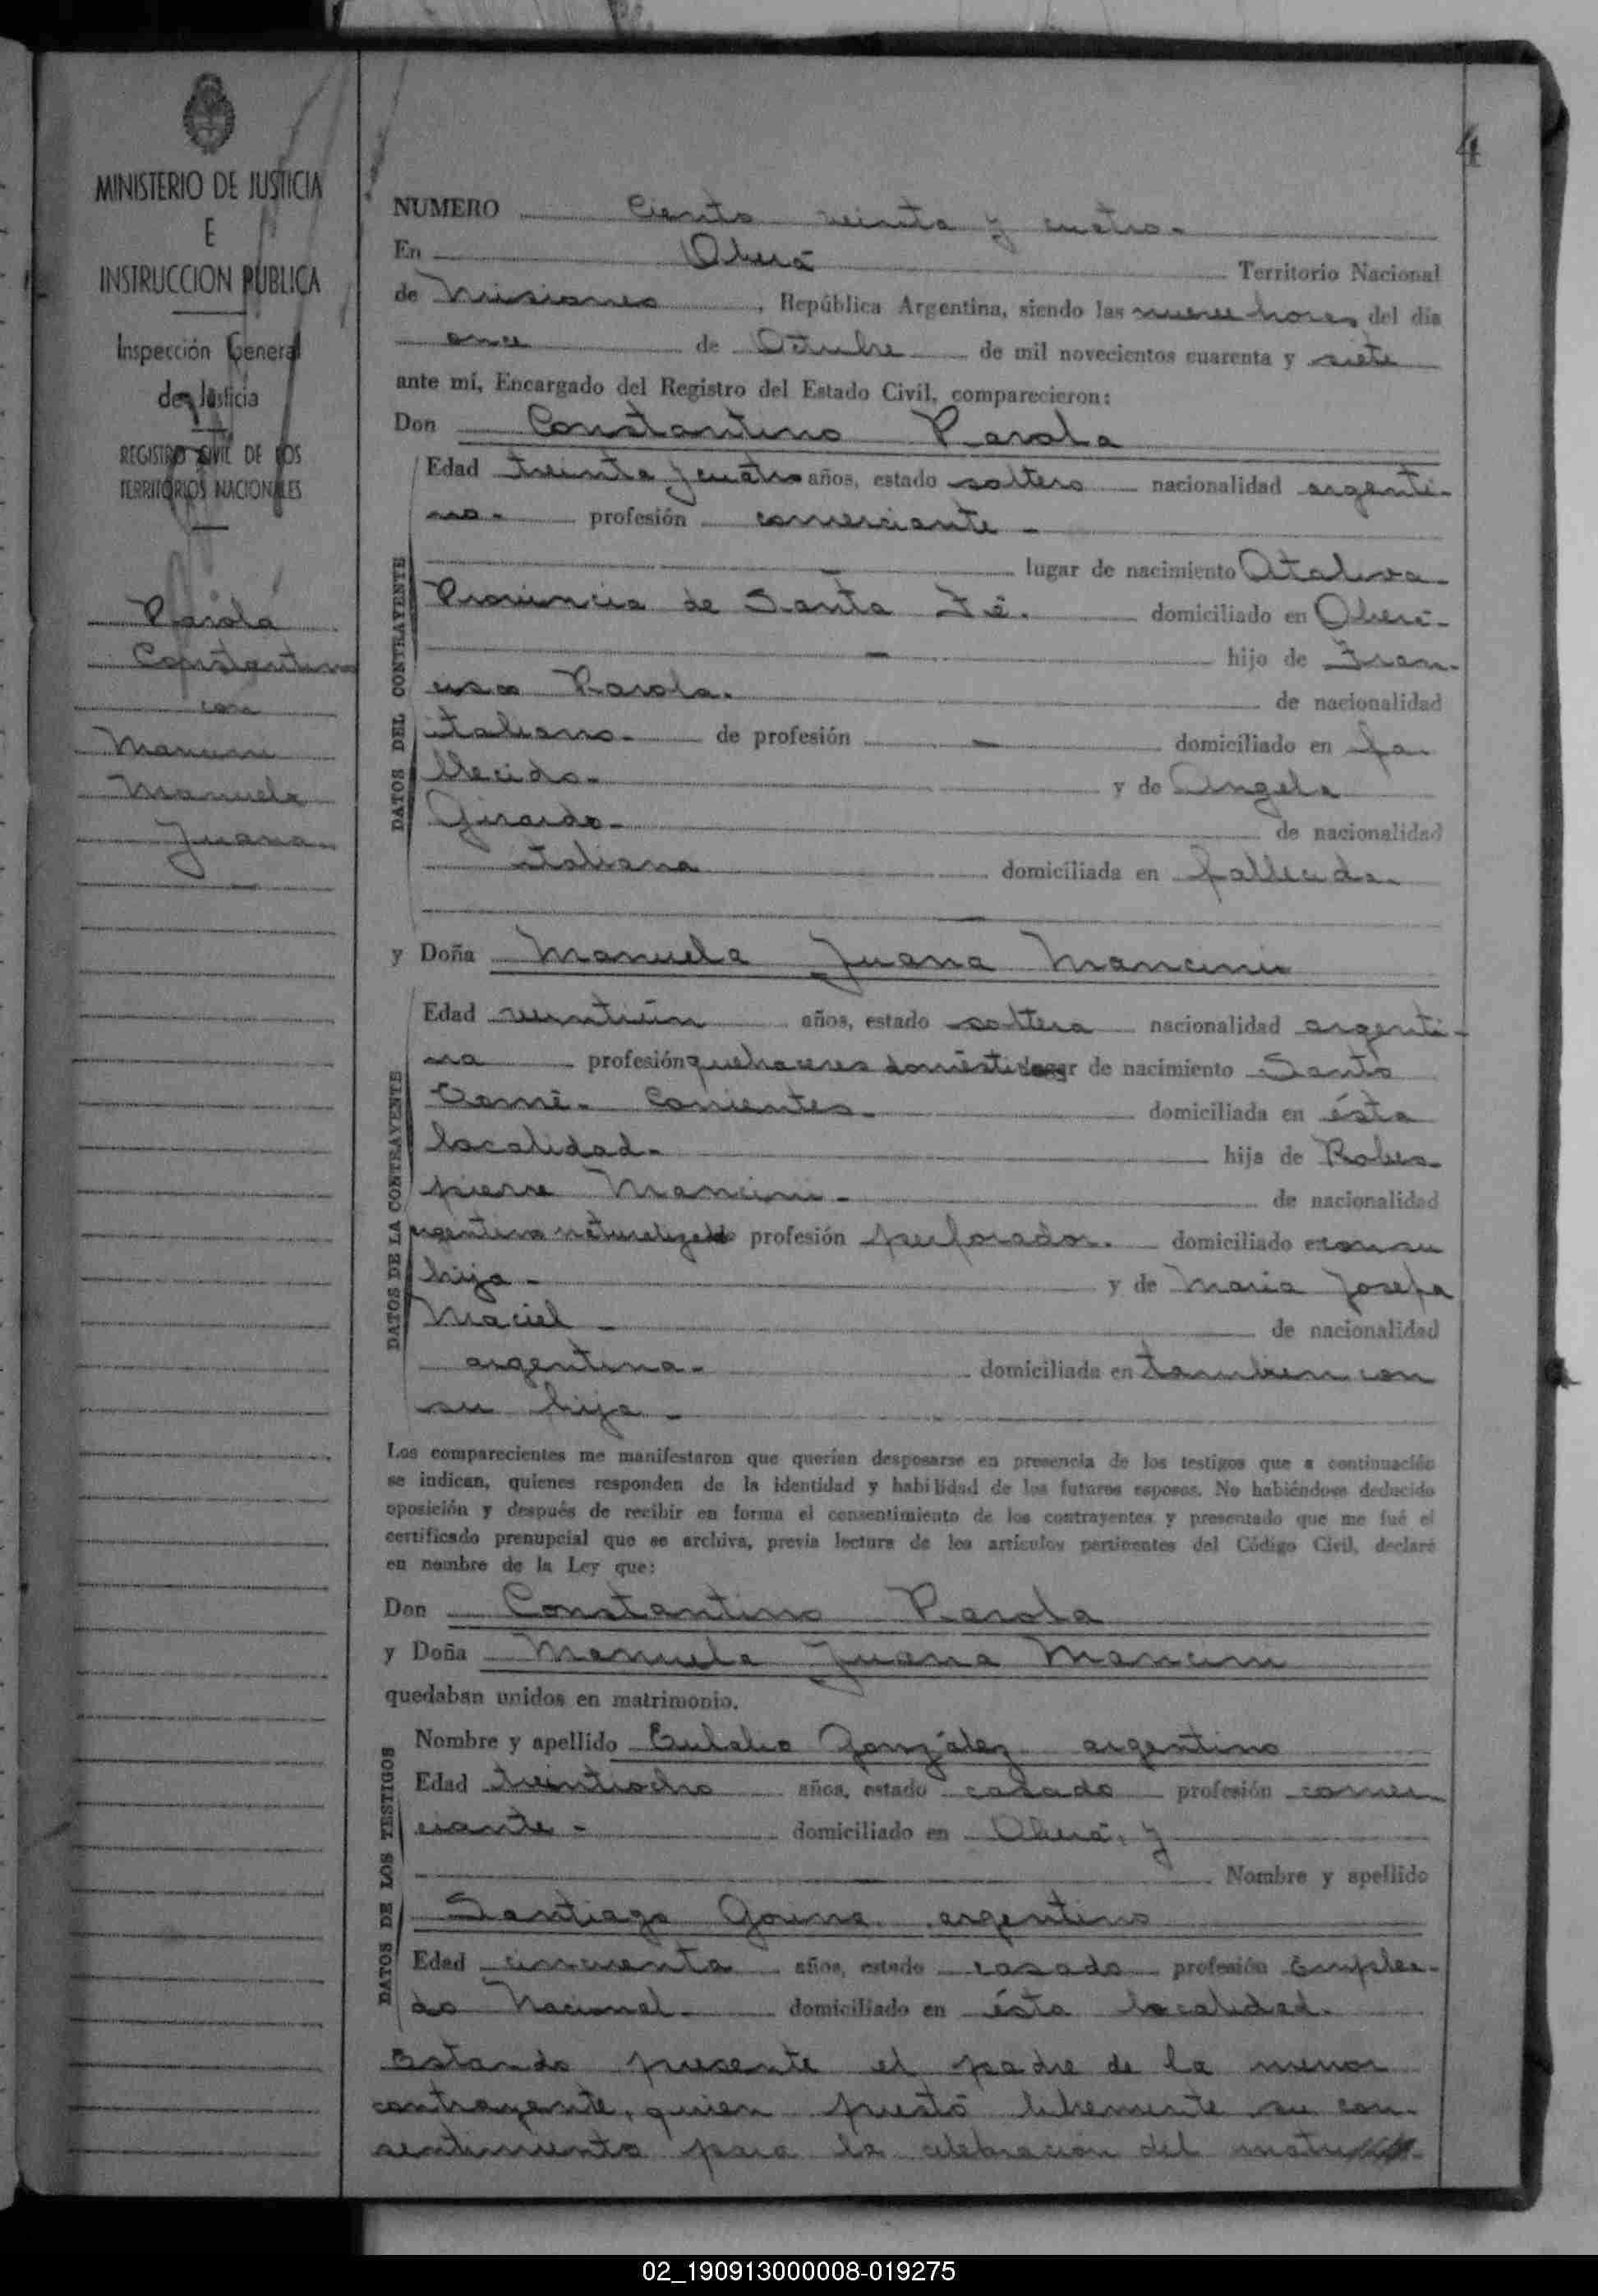 4
MINISTERIO DE JUSTICIA
E
INSTRUCCION PUBLICA
Inspección General
de Justicia
REGISTRO CIVIL DE LOS
TERRITORIOS NACIONALES
Parola
Constantino
con
Mancini
Manuela
Juana
NUMERO Ciento veinte y cuatro.
En Oberá Territorio Nacional
de Misiones, República Argentina, siendo las nueve horas del día
once de Octubre de mil novecientos cuarenta y siete
ante mí, Encargado del Registro del Estado Civil, comparecieron:
Don Constantino Parola
DATOS DEL CONTRAYENTE
Edad treinta y cuatro años, estado soltero nacionalidad argenti-
no. profesión comerciante -
lugar de nacimiento Ataliva-
Provincia de Santa Fé. domiciliado en Oberá-
- hijo de Fran-
cisco Parola. de nacionalidad
italiano. de profesión - domiciliado en fa-
llecido- y de Angela
Girardo- de nacionalidad
italiana domiciliada en fallecida-
y Doña Manuela Juana Mancini
DATOS DE LA CONTRAYENTE
Edad veintiún años, estado soltera nacionalidad argenti-
na profesión quehaceres domésticos lugar de nacimiento Santo
Tomé- Corrientes- domiciliada en ésta
localidad- hija de Robes-
pierre Mancini- de nacionalidad
argentino naturalizado profesión perforador. domiciliado en con su
hija - y de Maria Josefa
Maciel - de nacionalidad
argentina- domiciliada en tambien con
su hija -
Los comparecientes me manifestaron que querían desposarse en presencia de los testigos que a continuación
se indican, quienes responden de la identidad y habilidad de los futuros esposos. No habiéndose deducido
oposición y después de recibir en forma el consentimiento de los contrayentes y presentado que me fué el
certificado prenupcial que se archiva, previa lectura de los artículos pertinentes del Código Civil, declaré
en nombre de la Ley que:
Don Constantino Parola
y Doña Manuela Juana Mancini
quedaban unidos en matrimonio.
DATOS DE LOS TESTIGOS
Nombre y apellido Eulalio González argentino
Edad treintiocho años, estado casado profesión comer-
ciante - domiciliado en Oberá, y
Nombre y apellido
Santiago argentino
Edad cincuenta años, estado casado profesión Emplea-
do Nacional- domiciliado en ésta localidad.
Estando presente el padre de la menor
contrayente, quien prestó libremente su con-
sentimiento para la celebración del
02_190913000008-019275